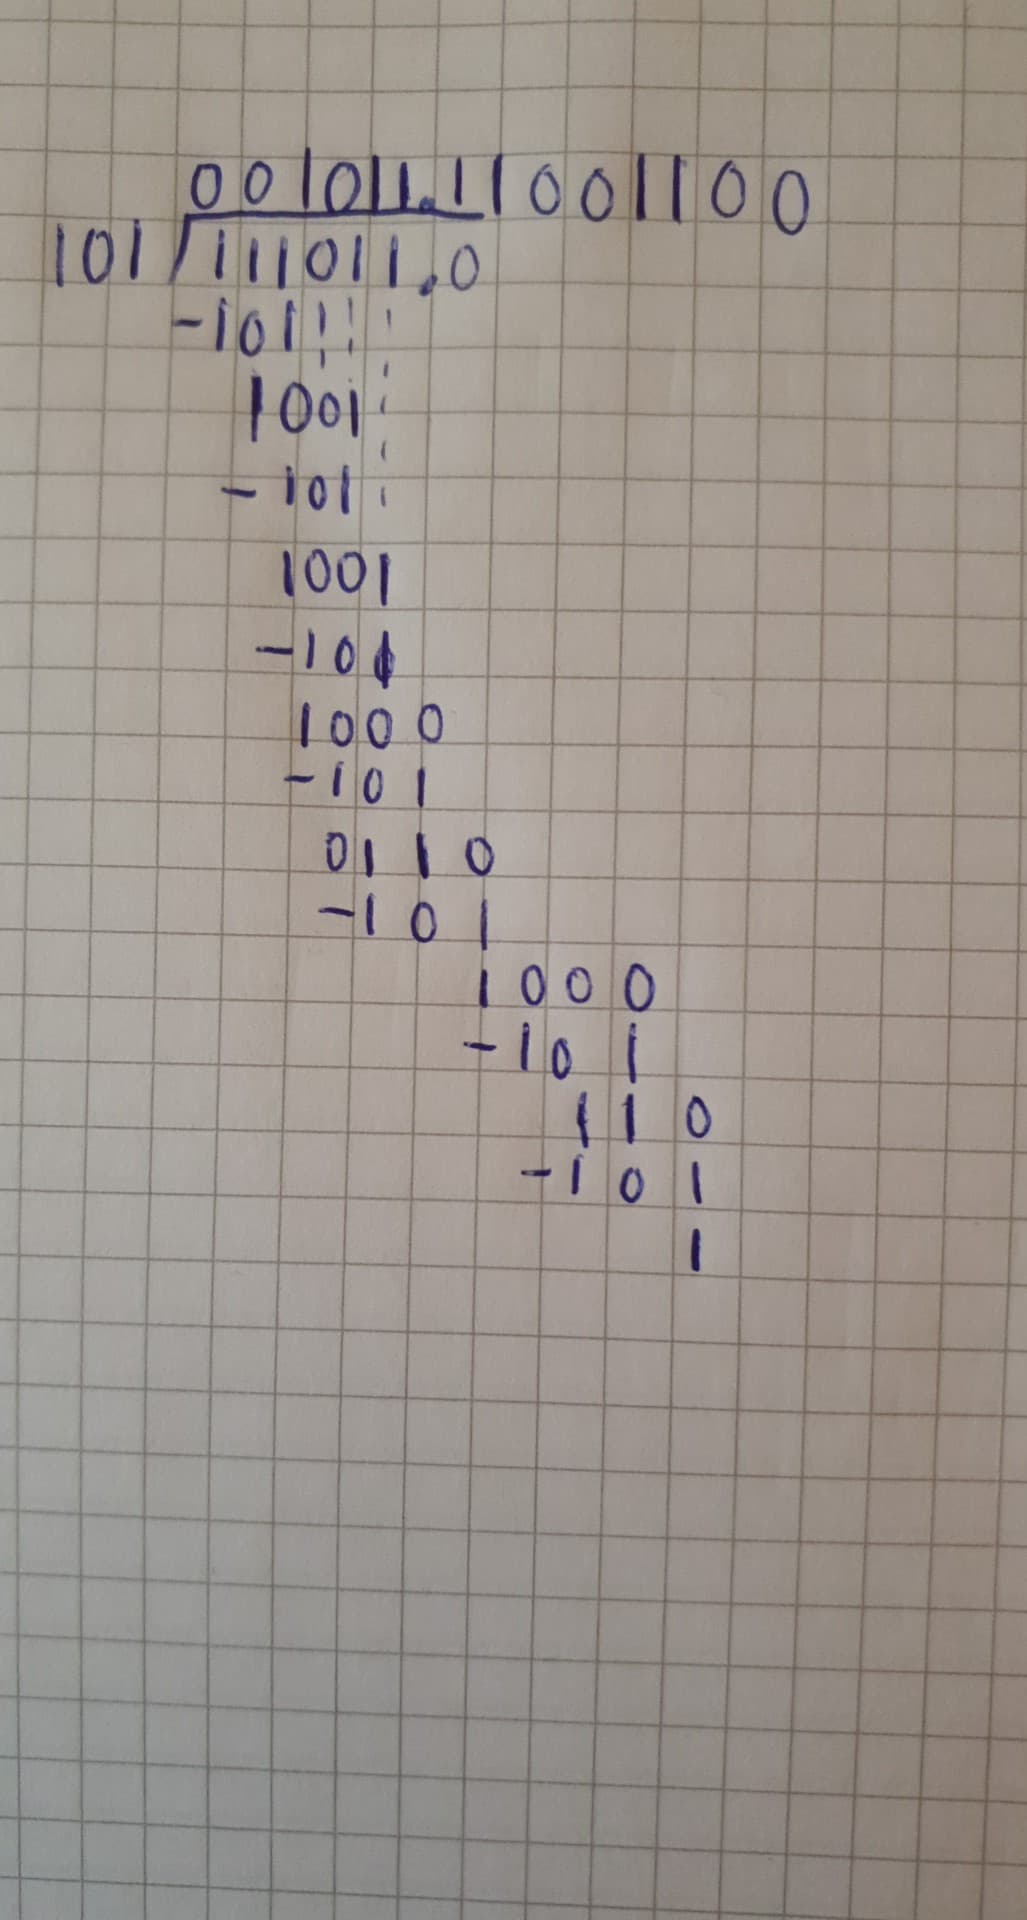 001011.11001100
101/111011.0
-101
1001
-101
1001
-101
1000
-101
0110
-101
1000
-101
110
-101
1